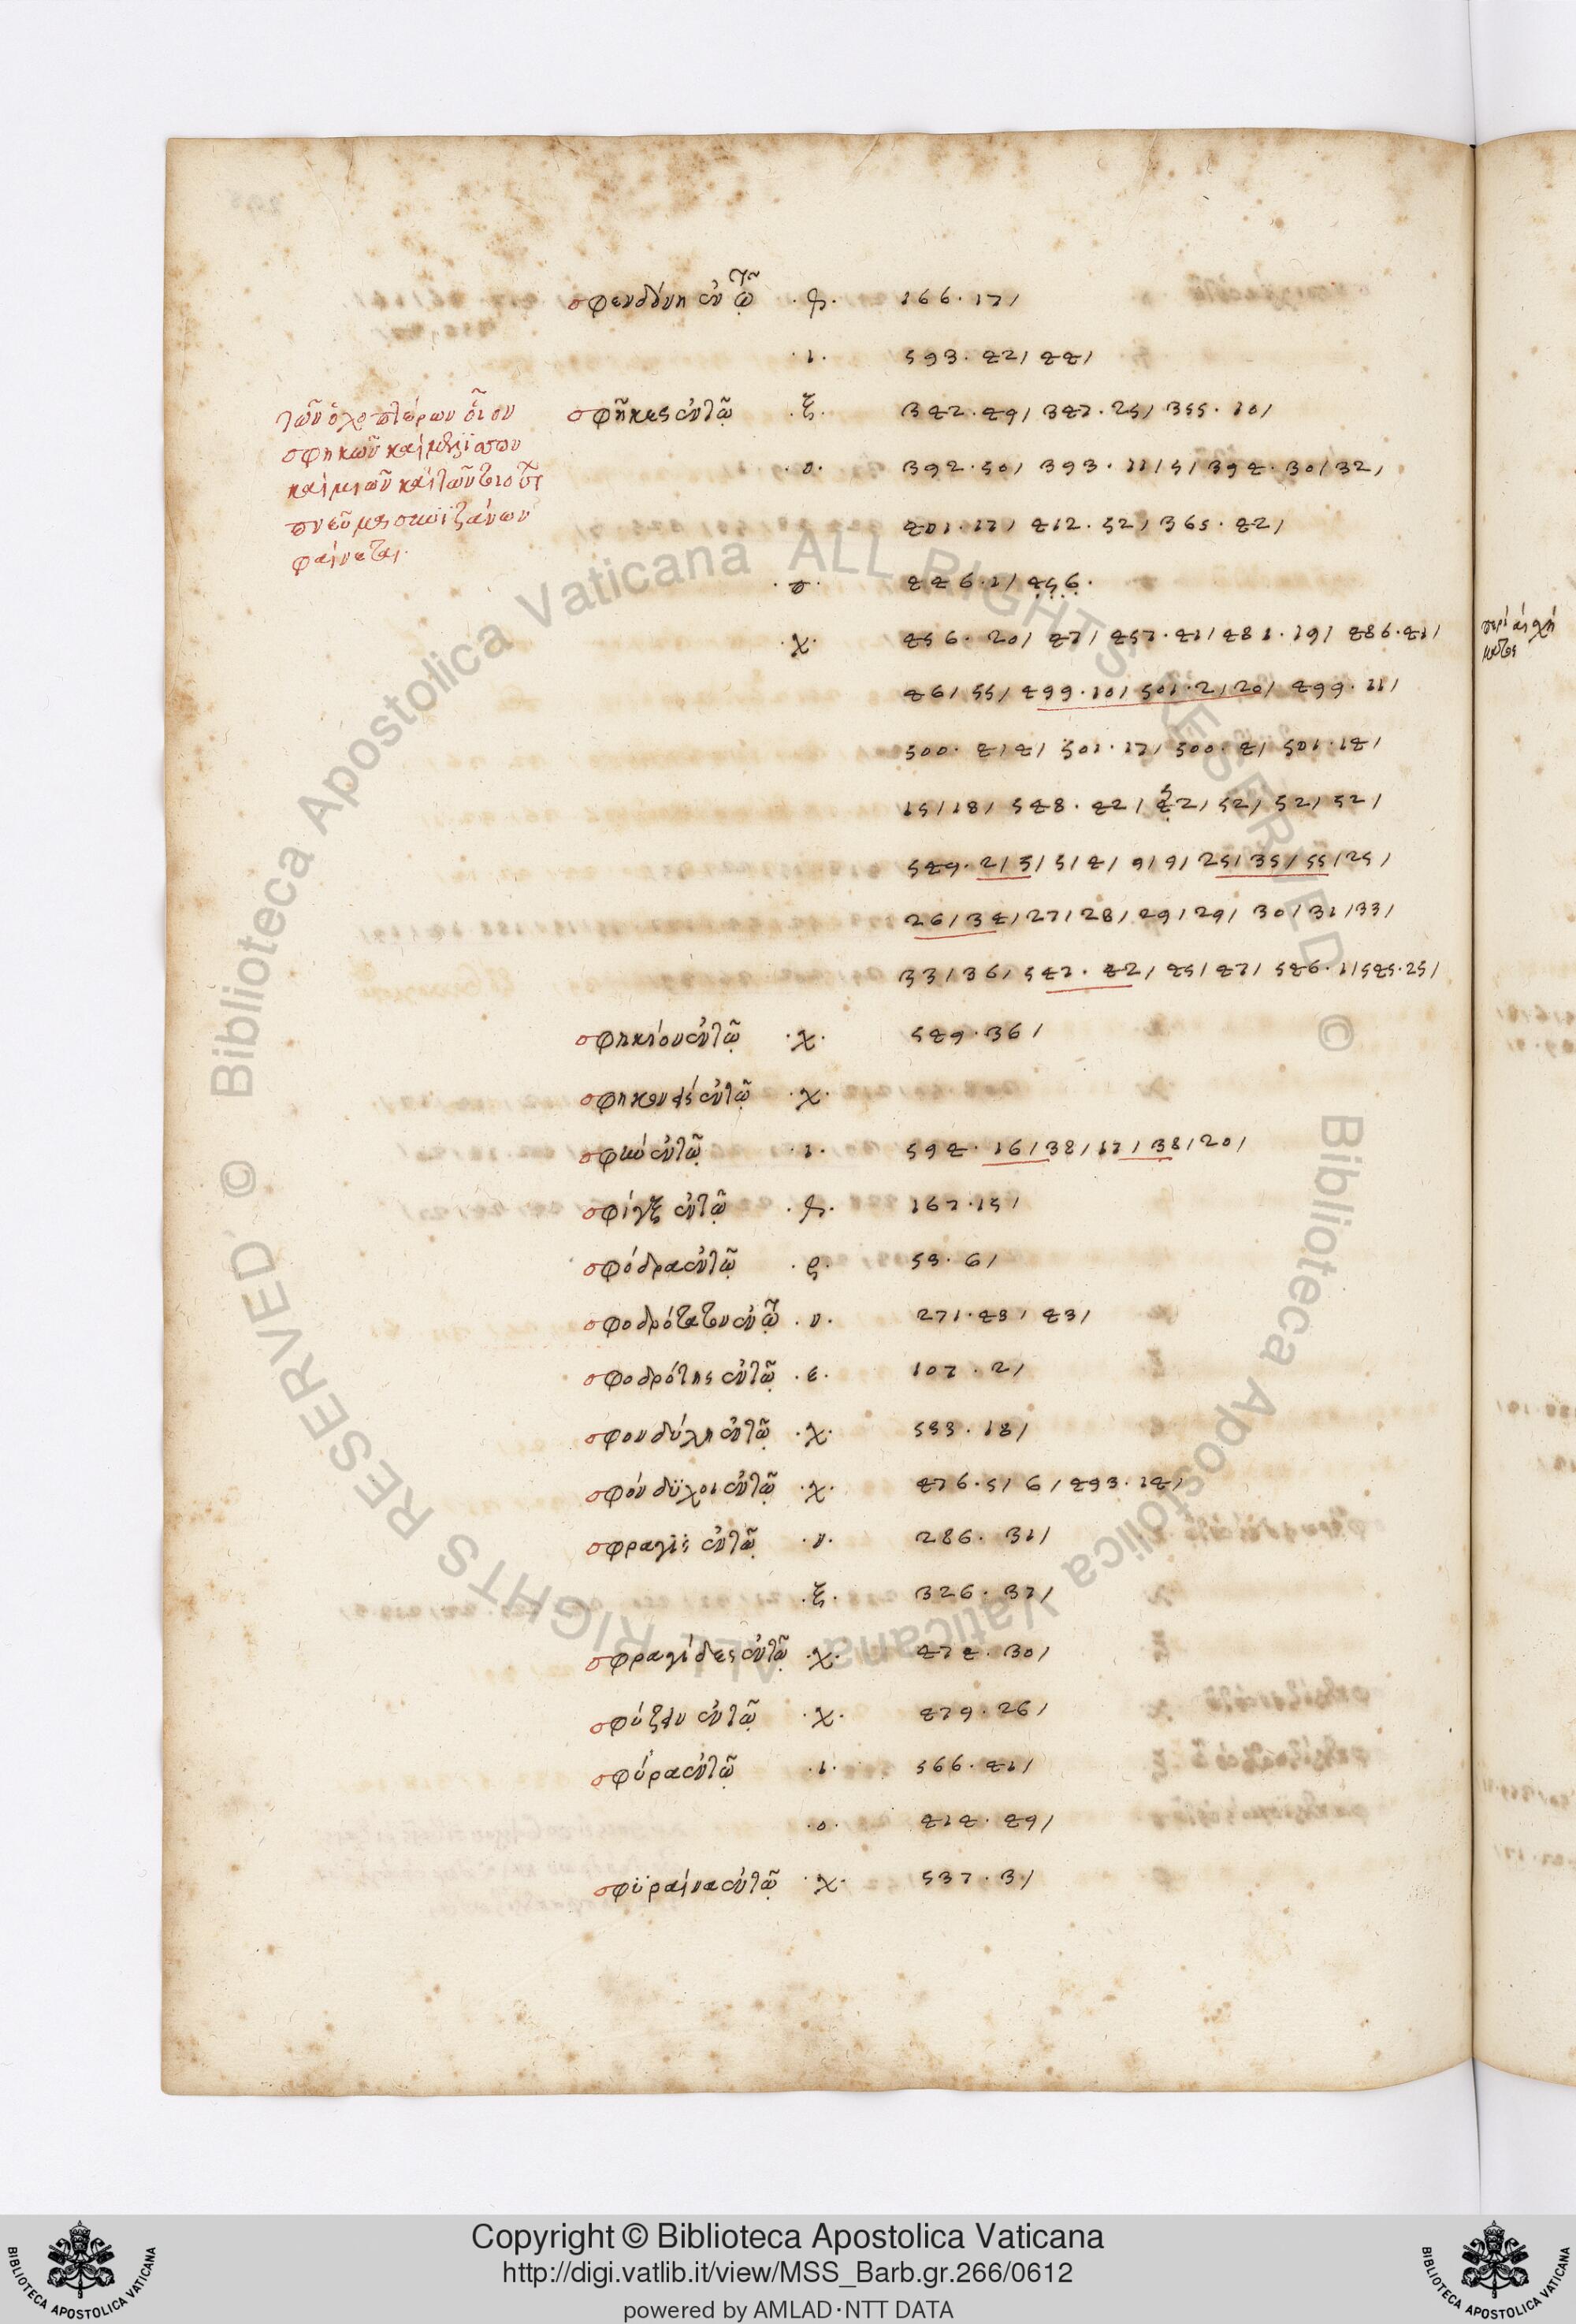 σφενδόνη ἐν τῷ · φ · 166 · 17 /
· ι · 593 · 42 / 44 /
σφῆκες ἐν τῷ · ξ · 342 · 49 / 347 · 25 / 355 · 10 /
· ο · 392 · 50 / 393 · 11 / 5 / 394 · 30 / 32 /
401 · 17 / 412 · 52 / 365 · 42 /
· π · 446 · 1 / 456 ·
· χ · 456 · 20 / 47 / 457 · 41 / 481 · 19 / 486 · 41 /
46 / 55 / 499 · 10 / 501 · 2 / 20 / 499 · 11 /
500 · 4 / 4 / 501 · 17 / 500 · 4 / 501 · 14 /
15 / 18 / 548 · 42 / 42 / 52 / 52 / 52 /
549 · 2 / 5 / 5 / 4 / 9 / 9 / 25 / 35 / 55 / 25 /
26 / 34 / 27 / 28 / 29 / 29 / 30 / 31 / 33 /
33 / 36 / 547 · 42 / 45 / 47 / 546 · 1 / 545 · 25 /
τῶν ὁλοπτέρων οἷον
σφηκῶν καὶ μελισσῶν
καὶ μυῶν καὶ τῶν
φαίνεται ·
σφηκίον ἐν τῷ · χ · 549 · 36 /
ἐν τῷ · χ ·
ἐν τῷ · ι · 594 · 16 / 38 / 17 / 38 / 20 /
σφίγξ ἐν τῷ · φ · 167 · 15 /
σφόδρα ἐν τῷ · ρ · 53 · 6 /
ἐν τῷ · ν · 271 · 43 / 43 /
σφοδρότης ἐν τῷ · ε · 107 · 2 /
σφονδύλη ἐν τῷ · χ · 533 · 18 /
σφόνδϋλοι ἐν τῷ · χ · 476 · 5 / 6 / 493 · 14 /
σφραγὶς ἐν τῷ · ν · 286 · 31 /
· ξ · 326 · 37 /
σφραγίδες ἐν τῷ · χ · 474 · 30 /
σφύζειν ἐν τῷ · χ · 479 · 26 /
σφύρα ἐν τῷ · ι · 566 · 41 /
· ο · 414 · 49 /
σφϋραίνα ἐν τῷ · χ · 537 · 3 /
Biblioteca Apostolica Vaticana ALL RIGHTS RESERVED ©
Copyright © Biblioteca Apostolica Vaticana
http://digi.vatlib.it/view/MSS_Barb.gr.266/0612
powered by AMLAD·NTT DATA
BIBLIOTECA APOSTOLICA VATICANA
BIBLIOTECA APOSTOLICA VATICANA